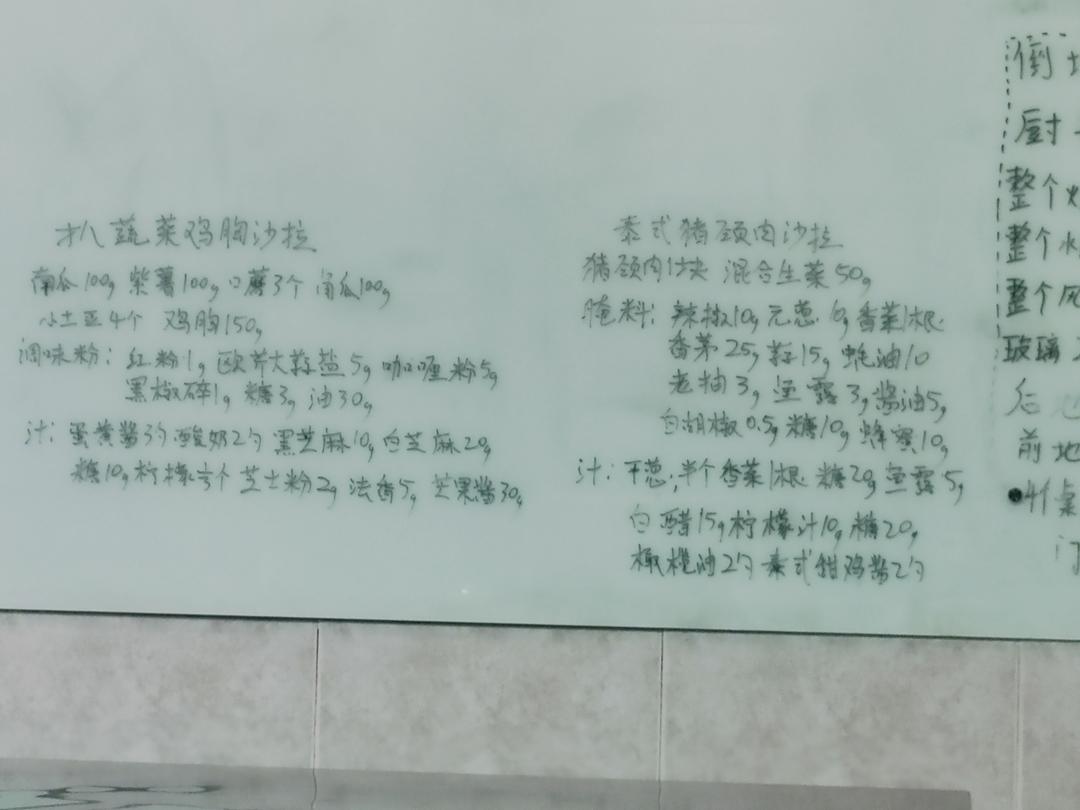 扒蔬菜鸡胸沙拉
南瓜100g 紫薯100g 口蘑3个 南瓜100g
小土豆4个 鸡胸150g
调味粉：红粉1g 欧芹大蒜盐5g 咖喱粉5g
黑椒碎1g 糖3g 油30g
汁：蛋黄酱3勺 酸奶2勺 黑芝麻10g 白芝麻20g
糖10g 柠檬 个 芝士粉2g 法香5g 芒果酱30g
泰式猪颈肉沙拉
猪颈肉1块 混合生菜50g
腌料：辣椒10g 元葱10g 香菜1根
香茅25g 蒜15g 蚝油10
老抽3g 鱼露3g 酱油5g
白胡椒0.5g 糖10g 蜂蜜10g
汁：干葱,半个 香菜1根 糖20g 鱼露5g
白醋15g 柠檬汁10g 糖20g
橄榄油2勺 泰式甜鸡酱2勺
倒
厨
整个
整个水
整个风
玻璃
后
前地
4个桌
门